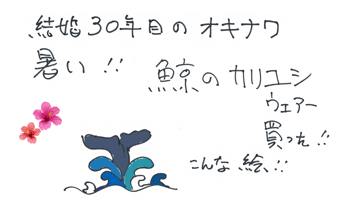 結婚30年目のオキナワ
暑い!!
鯨のカリユシ
ウェアー
買った!!
こんな絵!!